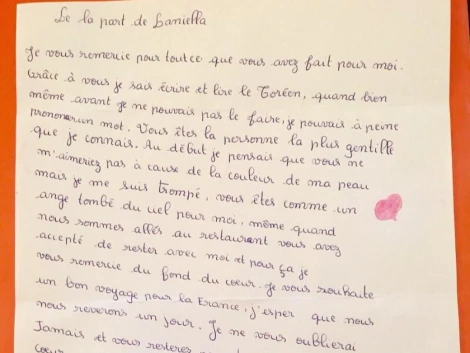 De la part de Daniella
Je vous remercie pour tout ce que vous avez fait pour moi.
Grâce à vous je sais écrire et lire le Coréen, quand bien
même avant je ne pouvais pas le faire, je pouvais à peine
prononcer un mot. Vous êtes la personne la plus gentille
que je connais. Au début je pensais que vous ne
m'aimeriez pas à cause de la couleur de ma peau
mais je me suis trompé, vous êtes comme un
ange tombé du ciel pour moi, même quand
nous sommes allés au restaurant vous avez
accepté de rester avec moi et pour ça je
vous remercie du fond du cœur. Je vous souhaite
un bon voyage pour la France, j'esper que nous
nous reverons un jour. Je ne vous oublierai
Jamais et vous resterez